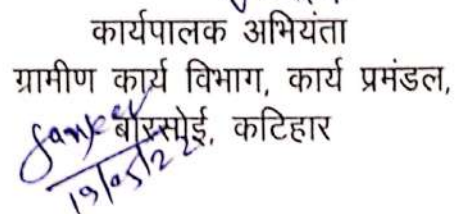 कार्यपालक अभियंता
ग्रामीण कार्य विभाग, कार्य प्रमंडल,
बारसोई, कटिहार
19/05/22